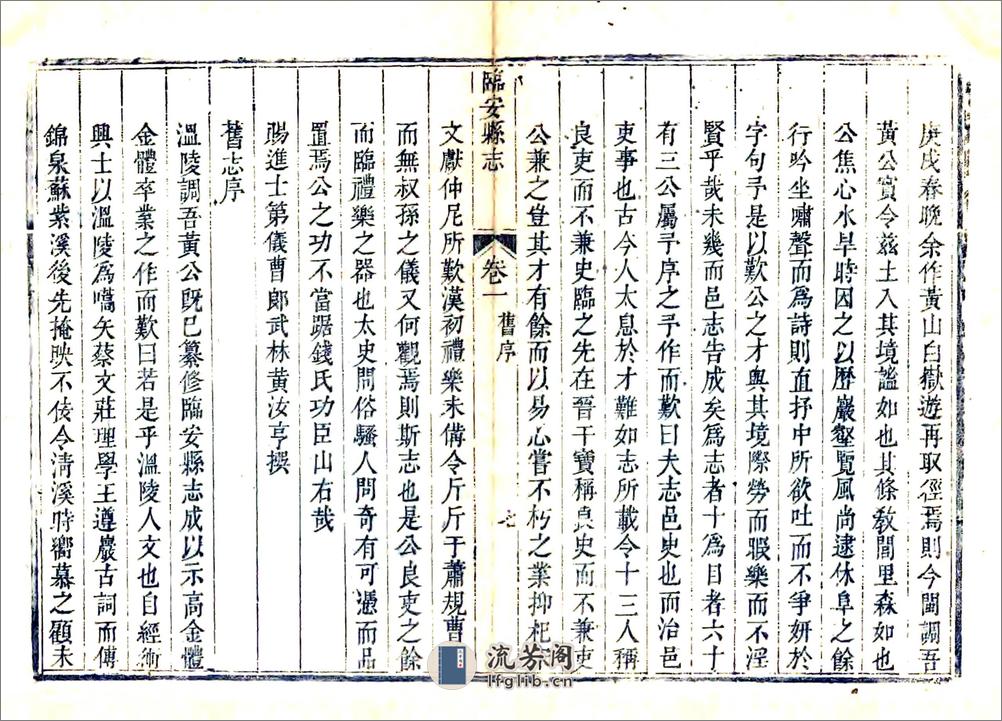 庚戌春晚余作黃山白嶽遊再取徑焉則今閩調吾
黃公實令茲土入其境謐如也其條敎閭里森如也
公焦心水旱時因之以歷巖壑覽風尚逮休阜之餘
行吟坐嘯聲而爲詩則直抒中所欲吐而不爭妍於
字句予是以歎公之才與其境際勞而暇樂而不淫
賢乎哉未幾而邑志告成矣爲志者十爲目者六十
有三公屬予序之予作而歎曰夫志邑史也而治邑
吏事也古今人太息於才難如志所載令十三人稱
良吏而不兼史臨之先在晉干寶稱良史而不兼吏
公兼之豈其才有餘而以易心嘗不朽之業抑杞
臨安縣志
卷一
舊序
七
文獻仲尼所歎漢初禮樂未備令斤斤于蕭規曹
而無叔孫之儀又何觀焉則斯志也是公良吏之餘
而臨禮樂之器也太史問俗騷人問奇有可憑而品
置焉公之功不當踞錢氏功臣山右哉
賜進士第儀曹郎武林黃汝亨撰
舊志序
溫陵調吾黃公旣已纂修臨安縣志成以示高金體
金體卒業之作而歎曰若是乎溫陵人文也自經術
興士以溫陵爲嚆矢蔡文莊理學王遵巖古詞而傳
錦泉蘇紫溪後先掩映不佞令淸溪時嚮慕之顧未
流芳阁
lfglib.cn